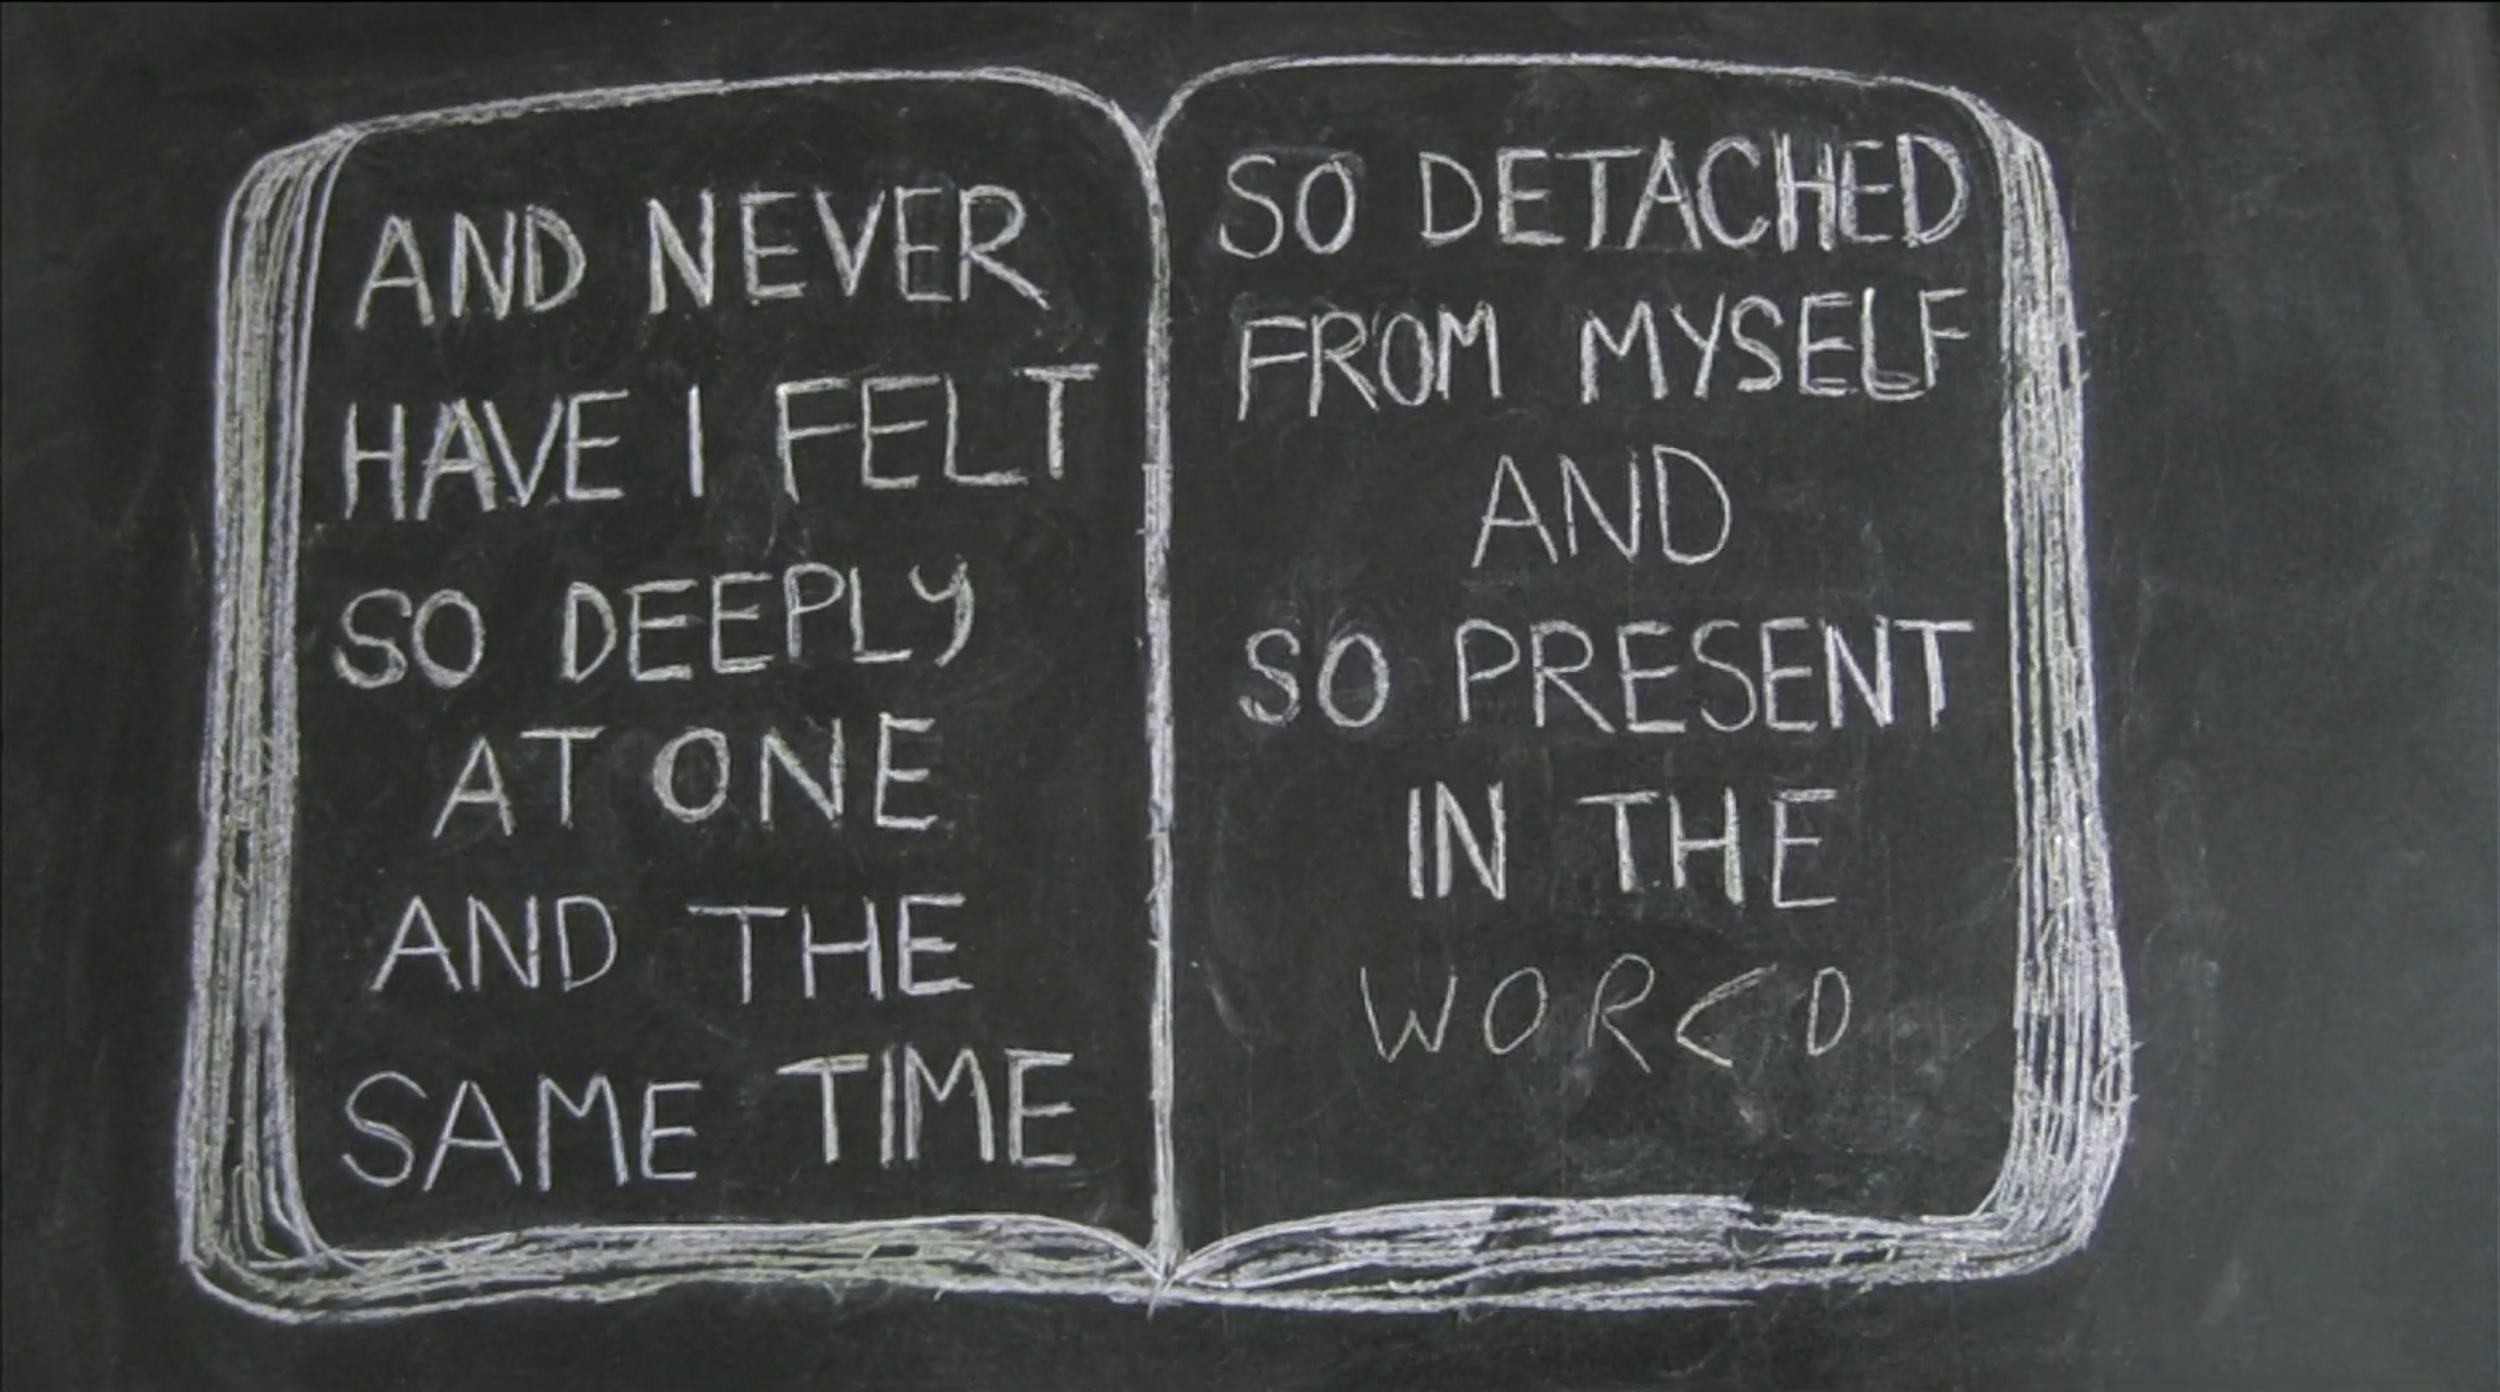 AND NEVER
HAVE I FELT
SO DEEPLY
AT ONE
AND THE
SAME TIME
SO DETACHED
FROM MYSELF
AND
SO PRESENT
IN THE
WORLD